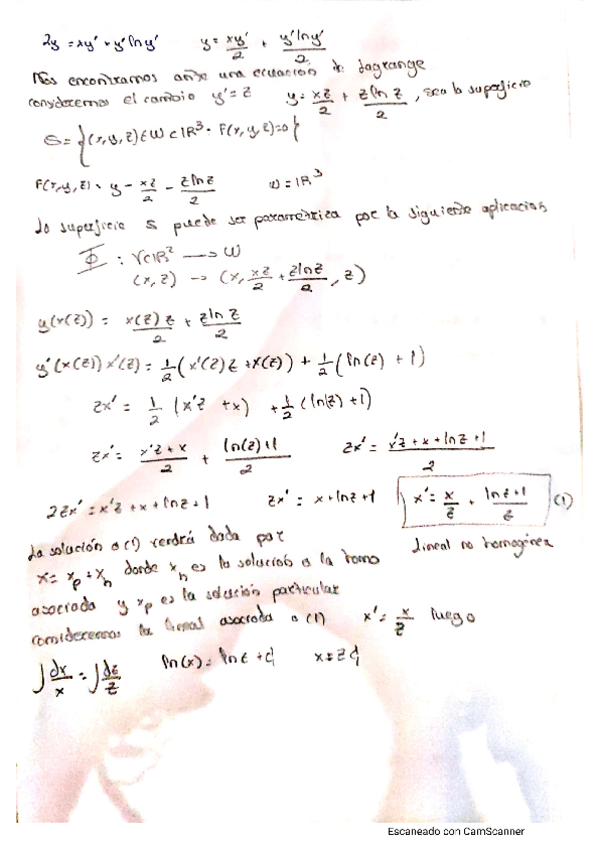 2y = xy' + y' ln y'     y = xy'/2 + y' ln y'/2
Nos encontramos ante una ecuación de Lagrange
consideremos el cambio y' = z     y = xz/2 + z ln z/2, sea la superficie
S = {(x, y, z) ∈ W ⊂ ℝ³ · F(x, y, z) = 0}
F(x, y, z) = y - xz/2 - z ln z/2     W = ℝ³
La superficie S puede ser parametriza por la siguiente aplicación
Φ : V ⊂ ℝ² → W
(x, z) → (x, xz/2 + z ln z/2, z)
y(x(z)) = x(z) z/2 + z ln z/2
y'(x(z)) x'(z) = 1/2 (x'(z) z + x(z)) + 1/2 (ln(z) + 1)
zx' = 1/2 (x'z + x) + 1/2 (ln(z) + 1)
zx' = (x'z + x)/2 + (ln(z) + 1)/2     zx' = (x'z + x + ln z + 1)/2
2zx' = x'z + x + ln z + 1     zx' = x + ln z + 1     x' = x/z + (ln z + 1)/z (1)
La solución a (1) vendrá dada por     lineal no homogénea
x = xp + xh donde xh es la solución a la homo
asociada y xp es la solución particular
consideremos la lineal asociada a (1)     x' = x/z luego
∫ dx/x = ∫ dz/z     ln(x) = ln z + C     x = z C
Escaneado con CamScanner